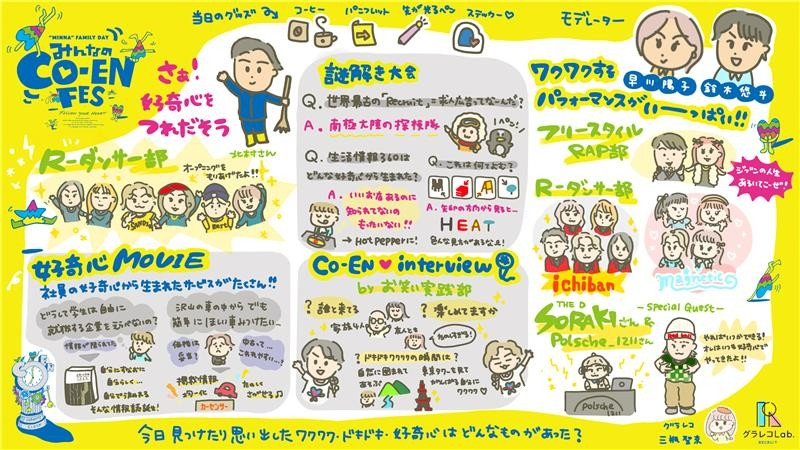 "MINNA" FAMILY DAY
みんなの
CO-EN
FES
FOLLOW YOUR HEART
当日のグッズ
コーヒー
パンフレット
ステッカー♡
モデレーター
早川陽子
鈴木悠斗
さぁ!
好奇心を
つれだそう
北村さん
R-ダンサー部
オープニングを
もりあげたよ!!
謎解き大会
Q. 世界最古の「Recruit」=求人広告ってなーんだ?
A. 南極大陸の探検隊
ペン!
Q. 生活情報360は
どんな好奇心から生まれた?
A. いいお店あるのに
知られてないの
もったいない!!
→ HOT PEPPERに!
Q. これは何てよむ?
A. 矢印の方向から見ると…
HEAT
色んな見方があるなぁ!
ワクワクする
パフォーマンスがい――っぱい!!
フリースタイル
RAP部
ジブンの人生
あるいてこーぜ!
R-ダンサー部
ichiban
magnetic
THE D
SORAKIさん &
Polsche_1211さん
- Special Guest -
polsche
1211
やればいつかできる!
オレはいつも好奇心で
やってきたよ!!
好奇心 MOVIE
社員の好奇心から生まれたサービスがたくさん!!
どうして学生は自由に
就職する企業をえらべないの?
情報が限られてる
自分にすなおに
自分らしく…
自分で決める
そんな情報誌を!
沢山の車の中からでも
簡単にほしい車みつけたい…
価格は
妥当?
掲載情報
カーセンサー
たのしい
さがせる♪
Co-EN ♥ interview
by お笑い実践部
? 誰と来てる
家族4人
友人と
? 楽しめてますか
? ドキドキワクワクの瞬間は?
自然に囲まれて
あそぶ!
東京タワーを見て
がんばる自分に
ワクワク♡
今日見つけたり思い出したワクワク・ドキドキ・好奇心はどんなものがあった?
グラレコ
グラレコLab.
RECRUIT